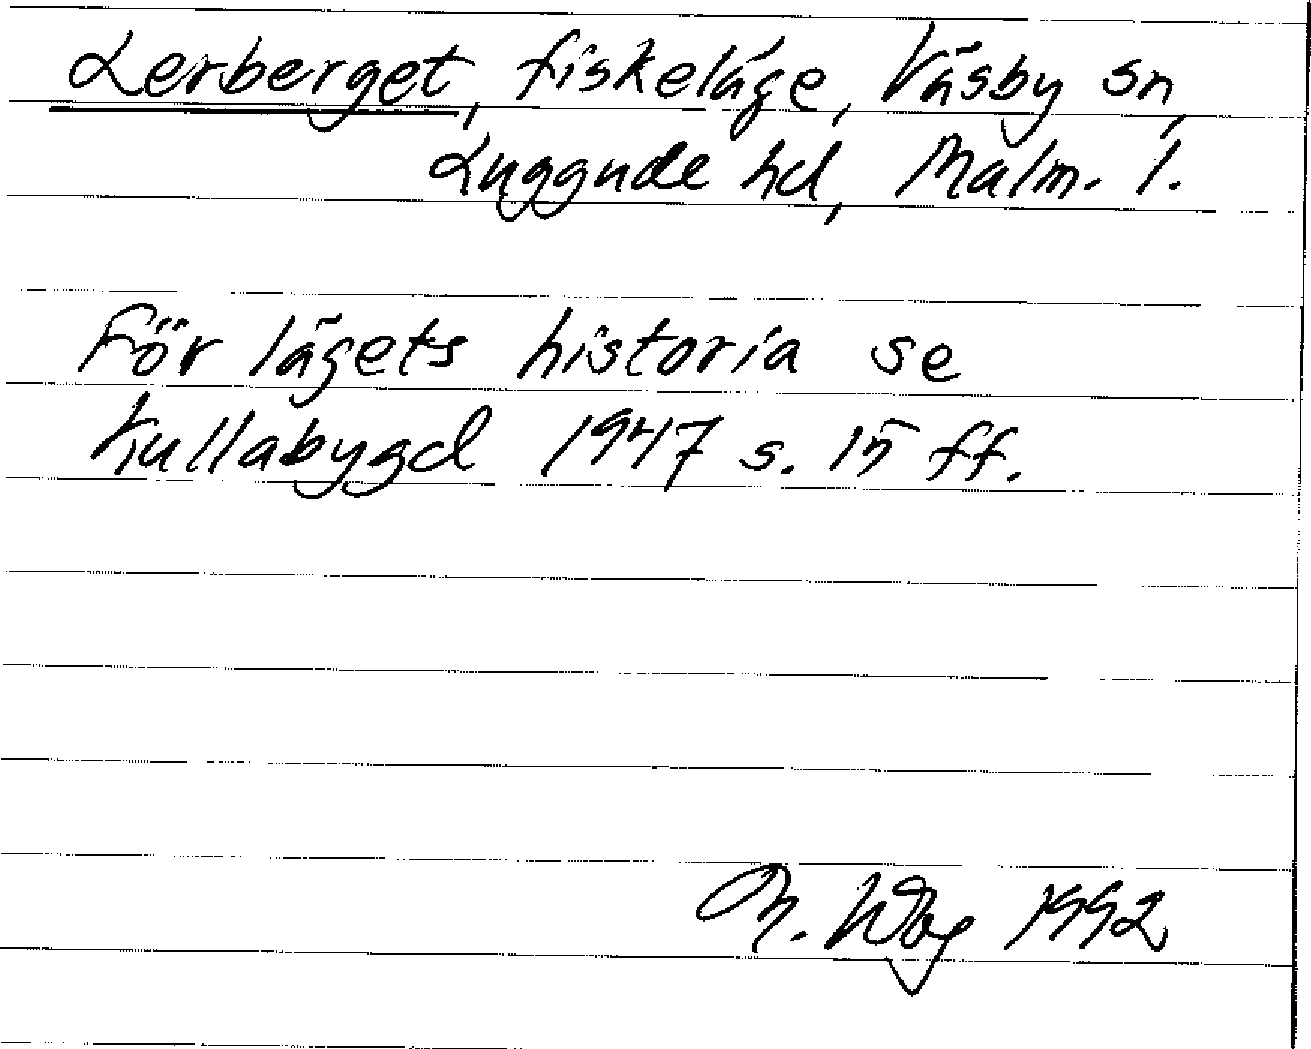 Lerberget, fiskeläge, Väsby sn,
Luggude hd, Malm. l.
För lägets historia se
Kullabygd 1947 s. 15 ff.
1992